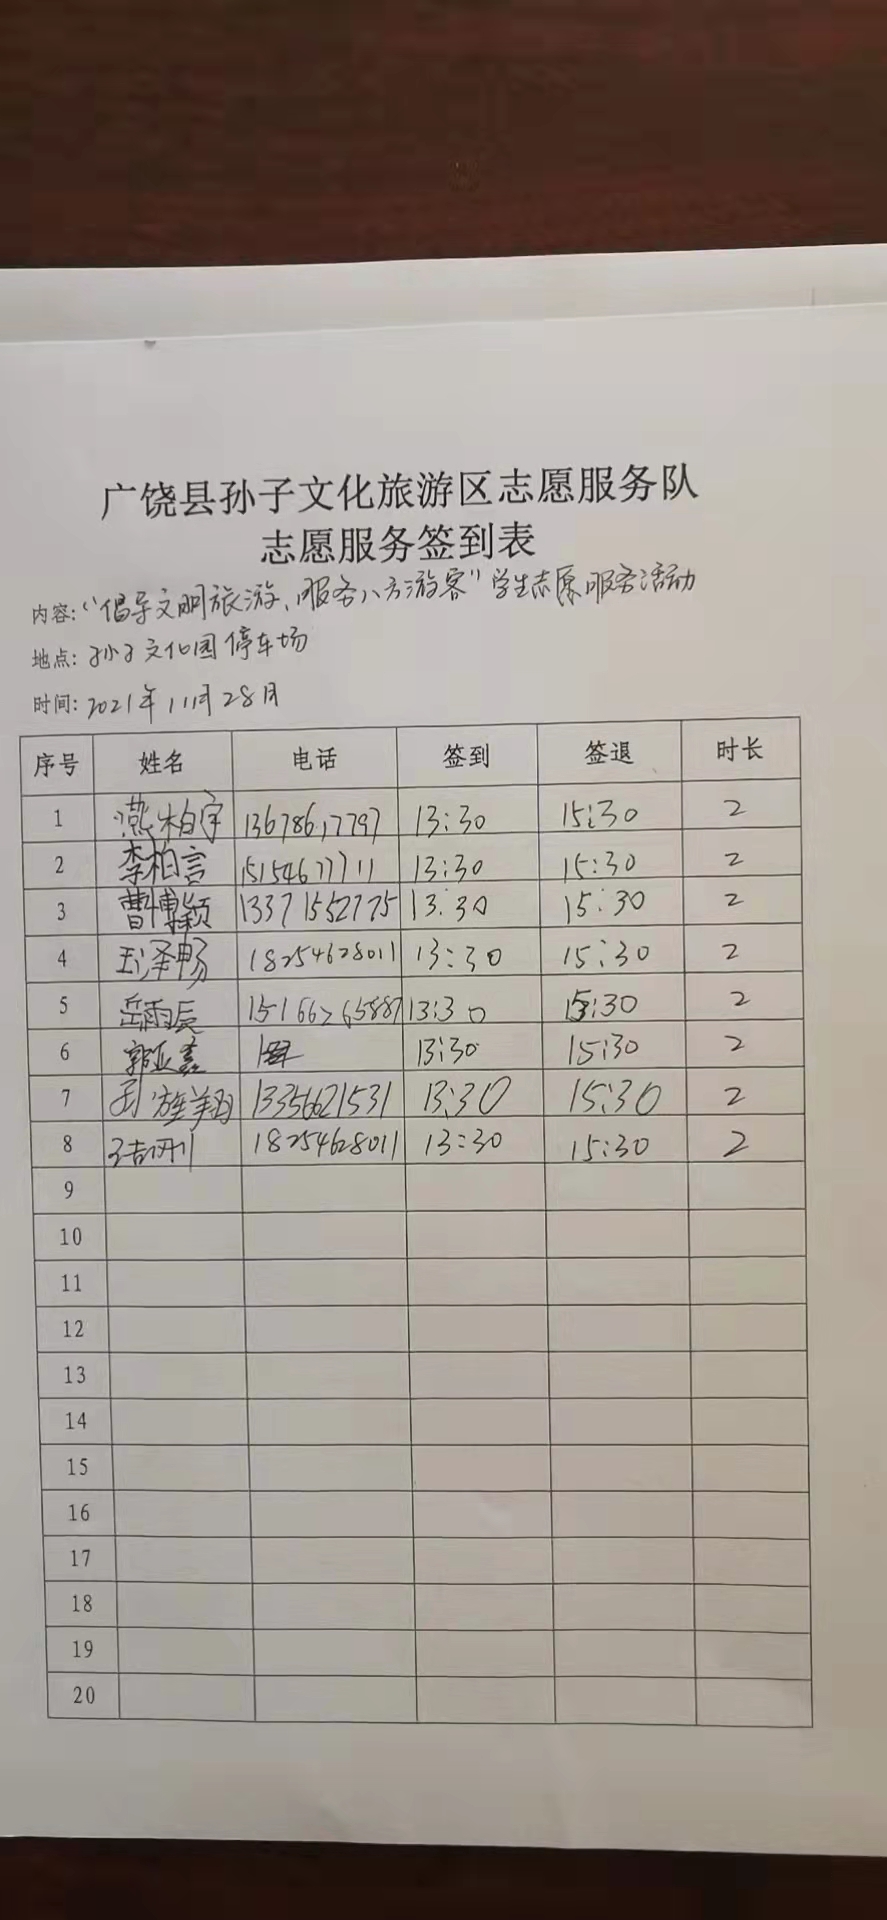 广饶县孙子文化旅游区志愿服务队
志愿服务签到表
内容:“倡导文明旅游、服务八方游客”学生志愿服务活动
地点:孙子文化园停车场
时间:2021年11月28月
序号 姓名 电话 签到 签退 时长
1 燕柏宇 13678617797 13:30 15:30 2
2 李柏言 15154677711 13:30 15:30 2
3 曹博颖 13371552775 13:30 15:30 2
4 泽畅 18254628011 13:30 15:30 2
5 岳雨辰 15166265887 13:30 15:30 2
6 郭亚鑫 13:30 15:30 2
7 翔 13356621531 13:30 15:30 2
8 18254628011 13:30 15:30 2
9
10
11
12
13
14
15
16
17
18
19
20